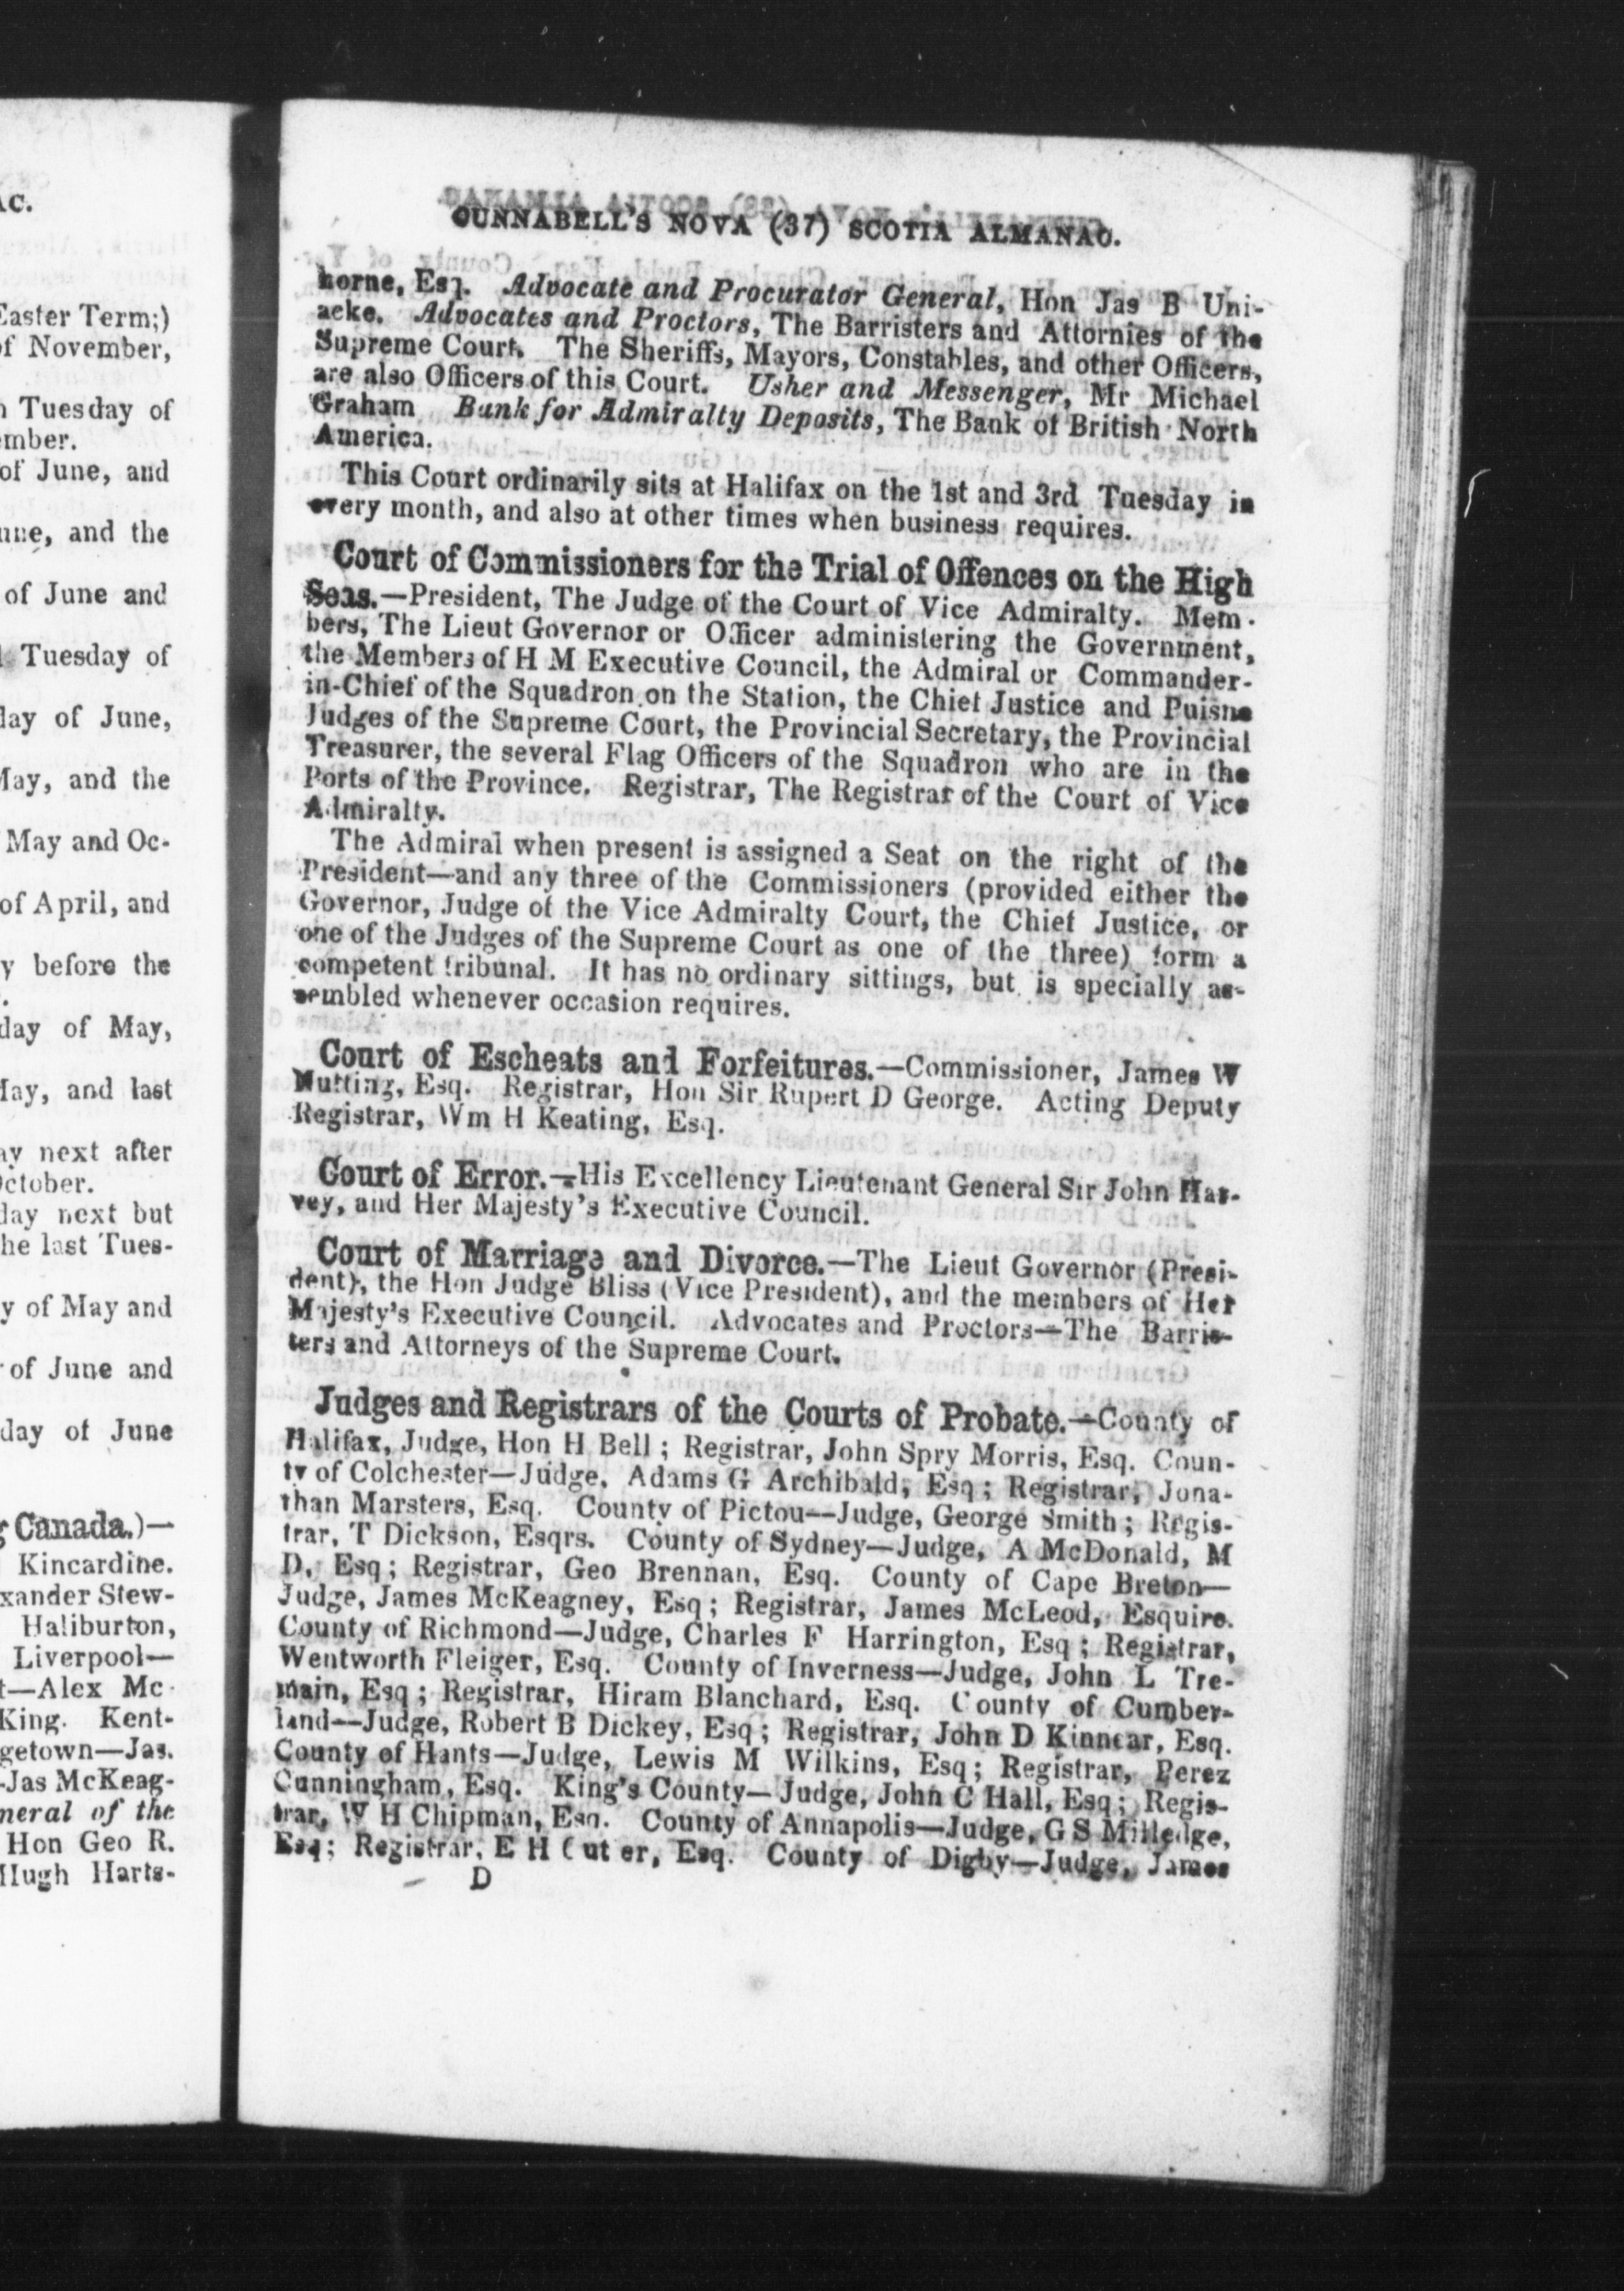 AC.
Easter Term;)
of November,
Tuesday of
ember.
of June, and
une, and the
of June and
Tuesday of
day of June,
May, and the
May and Oc-
of April, and
y before the
day of May,
May, and last
ay next after
October.
day next but
he last Tues-
y of May and
of June and
day of June
Canada.)—
Kincardine.
xander Stew-
Haliburton,
Liverpool—
t—Alex Mc
King. Kent-
getown—Jas.
-Jas McKeag-
neral of the
Hon Geo R.
Hugh Harts-
CUNNABELL'S NOVA (37) SCOTIA ALMANAC.
horne, Esq. Advocate and Procurator General, Hon Jas B Uni-
acke. Advocates and Proctors, The Barristers and Attornies of the
Supreme Court. The Sheriffs, Mayors, Constables, and other Officers,
are also Officers of this Court. Usher and Messenger, Mr Michael
Graham Bank for Admiralty Deposits, The Bank of British North
America.
This Court ordinarily sits at Halifax on the 1st and 3rd Tuesday in
every month, and also at other times when business requires.
Court of Commissioners for the Trial of Offences on the High
Seas.—President, The Judge of the Court of Vice Admiralty. Mem-
bers, The Lieut Governor or Officer administering the Government,
the Members of H M Executive Council, the Admiral or Commander-
in-Chief of the Squadron on the Station, the Chief Justice and Puisne
Judges of the Supreme Court, the Provincial Secretary, the Provincial
Treasurer, the several Flag Officers of the Squadron who are in the
Ports of the Province. Registrar, The Registrar of the Court of Vice
Admiralty.
The Admiral when present is assigned a Seat on the right of the
President—and any three of the Commissioners (provided either the
Governor, Judge of the Vice Admiralty Court, the Chief Justice, or
one of the Judges of the Supreme Court as one of the three) form a
competent tribunal. It has no ordinary sittings, but is specially as-
sembled whenever occasion requires.
Court of Escheats and Forfeitures.—Commissioner, James W
Nutting, Esq. Registrar, Hon Sir Rupert D George. Acting Deputy
Registrar, Wm H Keating, Esq.
Court of Error.—His Excellency Lieutenant General Sir John Har-
vey, and Her Majesty's Executive Council.
Court of Marriage and Divorce.—The Lieut Governor (Presi-
dent), the Hon Judge Bliss (Vice President), and the members of Her
Majesty's Executive Council. Advocates and Proctors—The Barris-
ters and Attorneys of the Supreme Court.
Judges and Registrars of the Courts of Probate.—County of
Halifax, Judge, Hon H Bell; Registrar, John Spry Morris, Esq. Coun-
ty of Colchester—Judge, Adams G Archibald, Esq; Registrar, Jona-
than Marsters, Esq. County of Pictou—Judge, George Smith; Regis-
trar, T Dickson, Esqrs. County of Sydney—Judge, A McDonald, M
D, Esq; Registrar, Geo Brennan, Esq. County of Cape Breton—
Judge, James McKeagney, Esq; Registrar, James McLeod, Esquire.
County of Richmond—Judge, Charles F Harrington, Esq; Registrar,
Wentworth Fleiger, Esq. County of Inverness—Judge, John L Tre-
main, Esq; Registrar, Hiram Blanchard, Esq. County of Cumber-
land—Judge, Robert B Dickey, Esq; Registrar, John D Kinnear, Esq.
County of Hants—Judge, Lewis M Wilkins, Esq; Registrar, Perez
Cunningham, Esq. King's County—Judge, John C Hall, Esq; Regis-
trar, W H Chipman, Esq. County of Annapolis—Judge, G S Milledge,
Esq; Registrar, E H Cutler, Esq. County of Digby—Judge, James
D